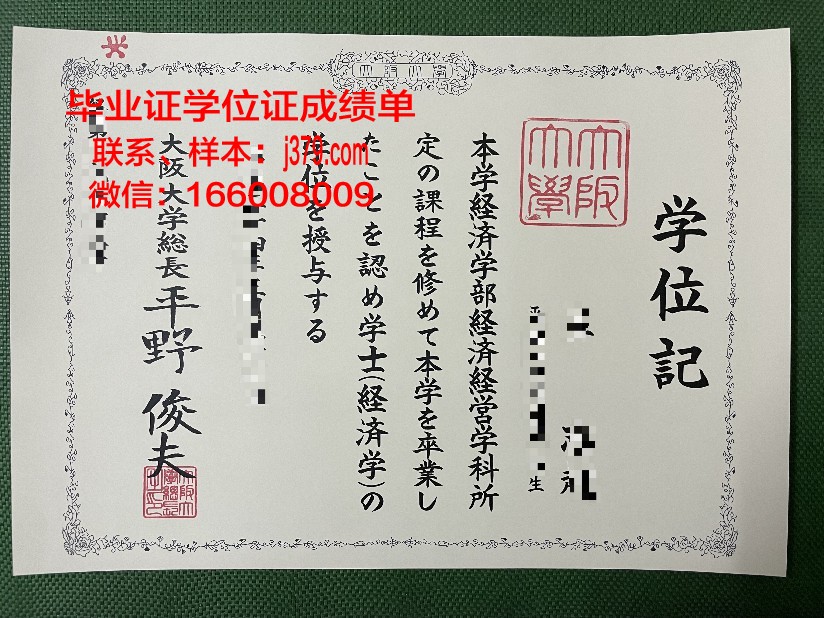 毕业证学位证成绩单
联系、样本：j379.com
微信：166008009
学位記
大阪
大學
生
本学経済学部経済経営学科所
定の課程を修めて本学を卒業し
たことを認め学士(経済学)の
学位を授与する
大阪大学総長
平野俊夫